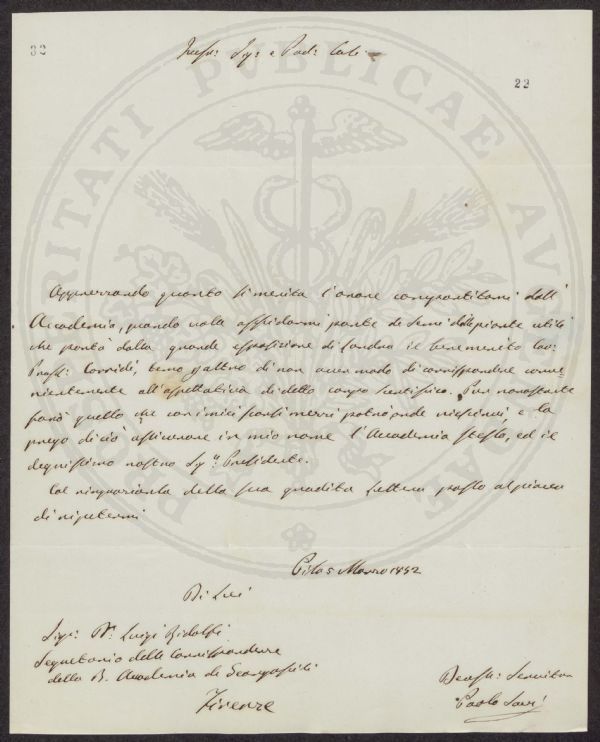 32
22
Apprezzando quanto si merita l'onore compartitomi dall'
Accademia, quando volle affidarmi parte di semi delle piante utili
che portò dalla grande esposizione di Londra il benemerito Cav:
Profess: Corridi, temo peraltro di non aver modo di corrispondere conve
nientemente all'aspettativa di detto corpo scientifico. Pur nonostante
farò quello che con i miei scarsi mezzi potrò onde riuscirvi e la
prego di ciò assicurare in mio nome l'Accademia stessa, ed il
degnissimo nostro Sig.r Presidente.
Col ringraziarla della sua gradita lettera passo al piacere
di ripetermi
Pisa 5 Marzo 1852
Di Lei
Sig: Luigi Ridolfi
Segretario delle Corrispondenze
della R. Accademia dei Georgofili
Firenze
Servitore
Paolo Savi
PROSPERITATI PUBLICAE AUGENDAE